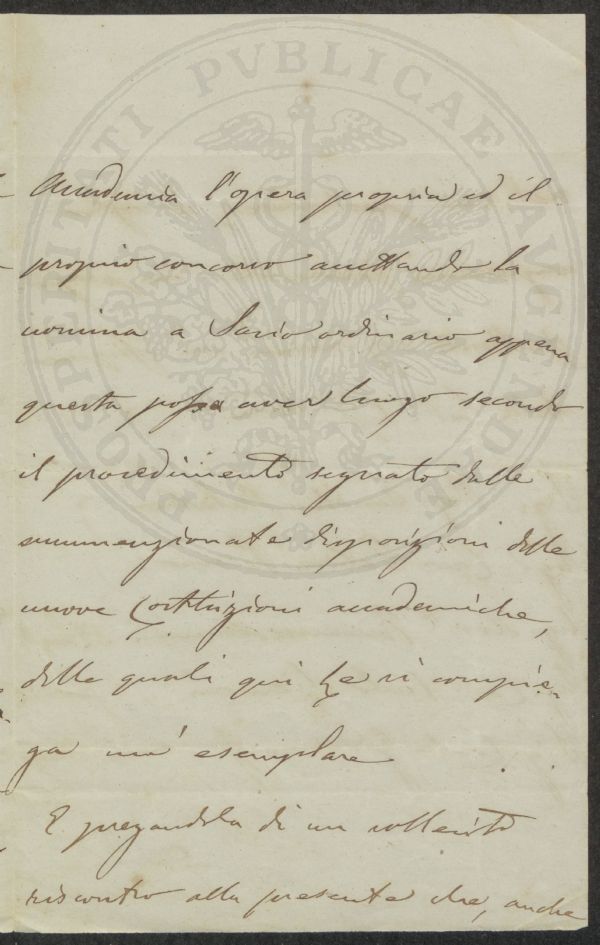 PROSPERITATI PVBLICAE AVGENDAE
Accademia l'opera propria ed il
proprio concorso accettando la
nomina a Socio ordinario appena
questa possa aver luogo secondo
il procedimento segnato dalle
summenzionate disposizioni delle
nuove Costituzioni accademiche,
delle quali qui Le si compie-
ga un' esemplare
E pregandola di un sollecito
riscontro alla presente che, anche